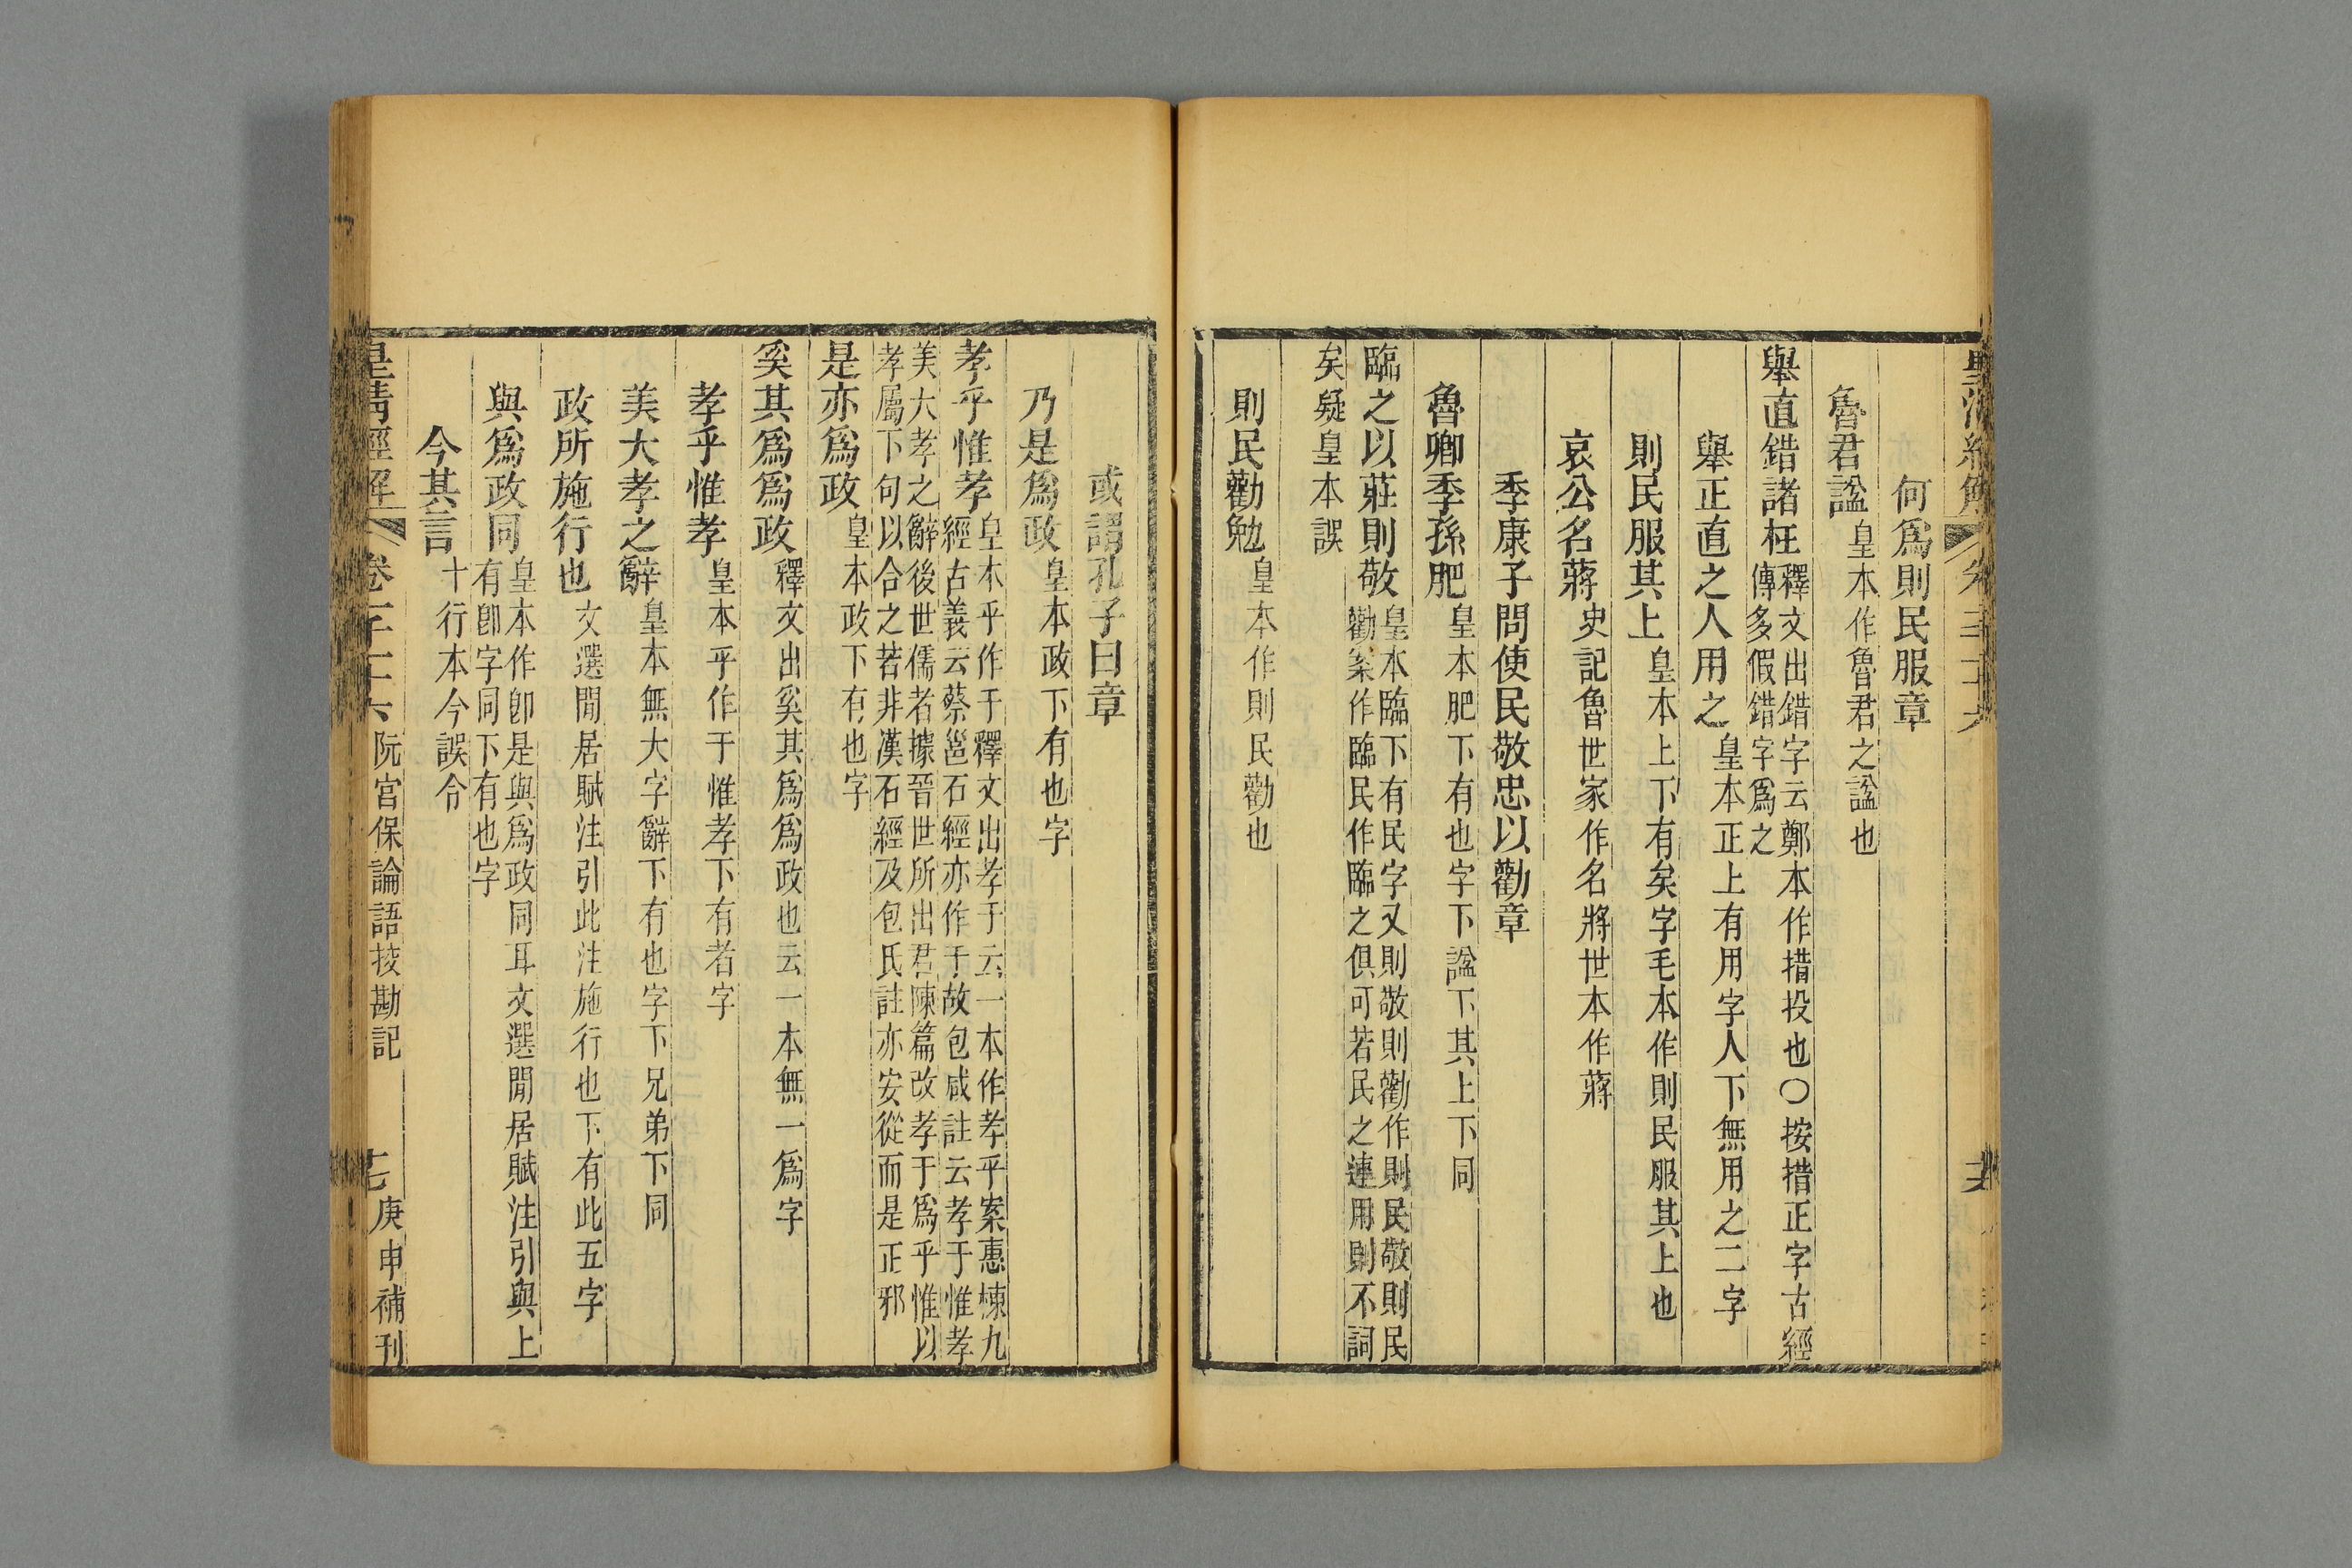 何爲則民服章
魯君諡皇本作魯君之諡也
舉直錯諸枉釋文出錯字云鄭本作措投也〇按措正字古經
傳多假錯字爲之
舉正直之人用之皇本正上有用字人下無用之二字
則民服其上皇本上下有矣字毛本作則民服其上也
哀公名蔣史記魯世家作名將世本作蔣
季康子問使民敬忠以勸章
魯卿季孫肥皇本肥下有也字下諡下其上下同
臨之以莊則敬皇本臨下有民字又則敬則勸作則民敬則民
勸案作臨民作臨之俱可若民之連用則不詞
矣疑皇本誤
則民勸勉皇本作則民勸也
或謂孔子曰章
乃是爲政皇本政下有也字
孝乎惟孝皇本乎作于釋文出孝于云一本作孝乎案惠棟九
經古義云蔡邕石經亦作于故包咸註云孝于惟孝
美大孝之辭後世儒者據晉世所出君陳篇改孝于爲乎惟以
孝屬下句以合之若非漢石經及包氏註亦安從而是正邪
是亦爲政皇本政下有也字
奚其爲爲政釋文出奚其爲爲政也云一本無一爲字
孝乎惟孝皇本乎作于惟孝下有者字
美大孝之辭皇本無大字辭下有也字下兄弟下同
政所施行也文選閒居賦注引此注施行也下有此五字
與爲政同皇本作卽是與爲政同耳文選閒居賦注引與上
有卽字同下有也字
今其言十行本今誤令
皇淸經解 卷一千一十六 阮宮保論語挍勘記 七 庚申補刊